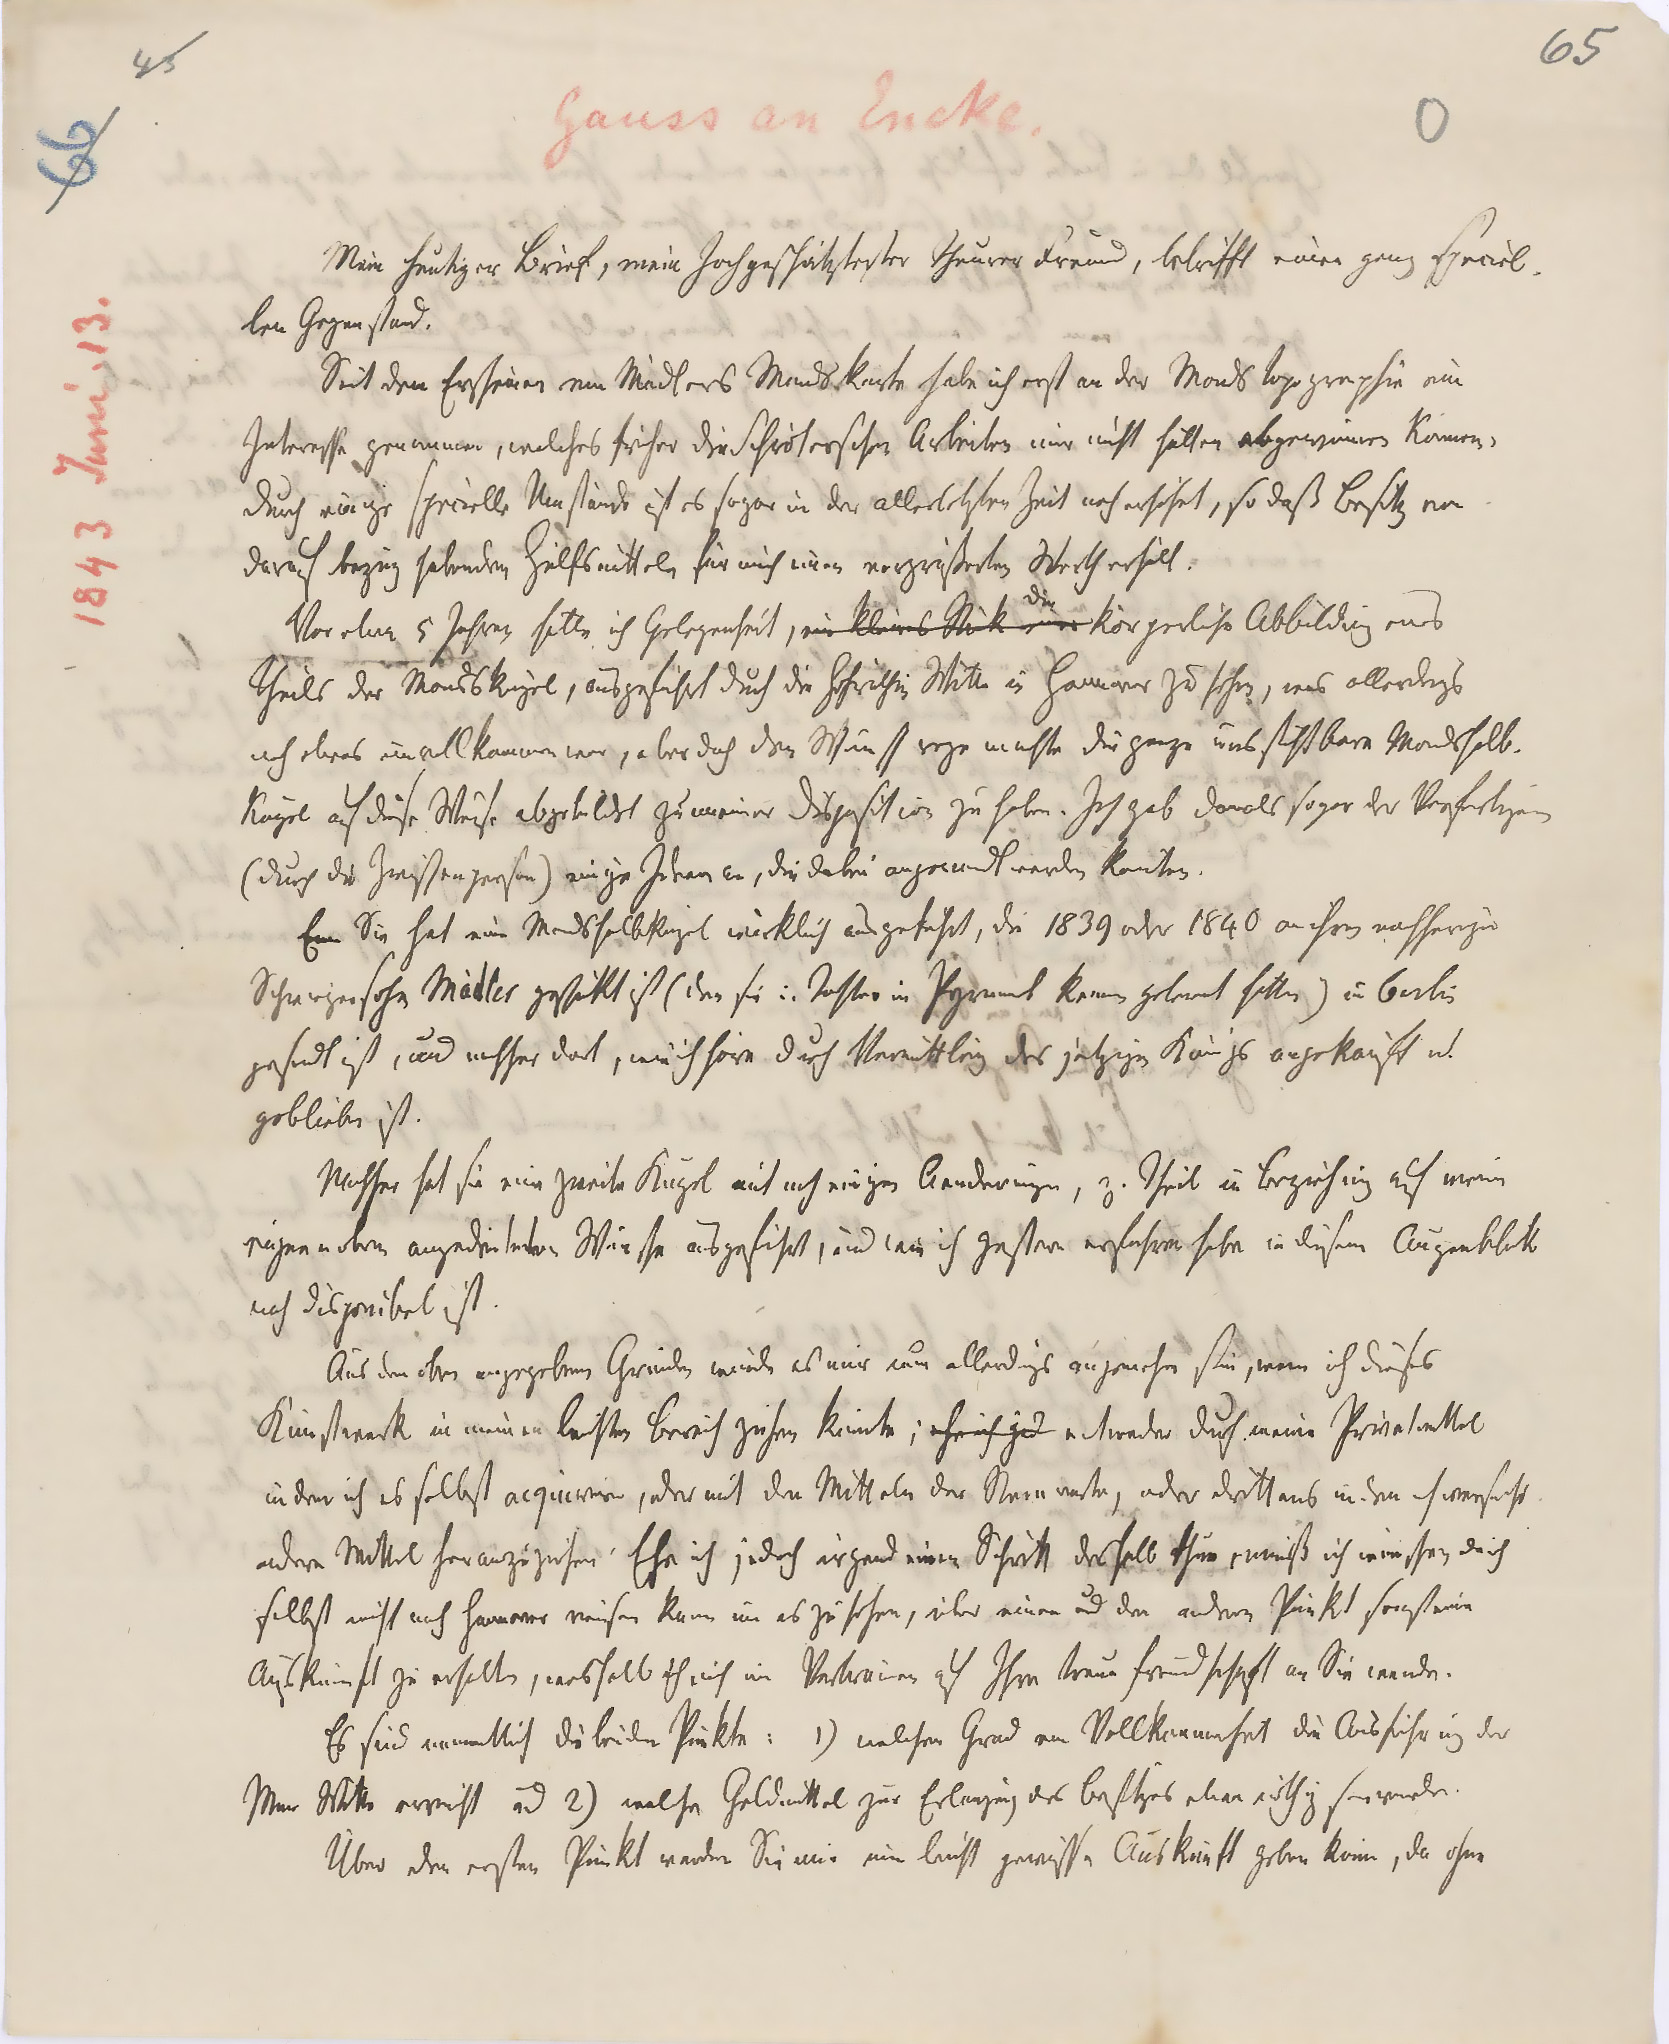 45
65
66
0
Gauss an Encke.
1843 Juni 13.
Mein heutiger Brief, mein Hochgeschätztester theurer Freund, betrifft einen ganz speciel-
len Gegenstand.
Seit dem Erscheinen von Mädlers Mondskarte habe ich erst an der Mondstopographie ein
Interesse genommen, welches früher die Schröterschen Arbeiten mir nicht hatten abgewinnen können,
durch einige specielle Umstände ist es sogar in der allerletzten Zeit noch erhöhet, so daß Besitz von
darauf bezug habenden Hülfsmitteln für mich einen vergrößerten Werth erhält.
Vor etwa 5 Jahren hatte ich Gelegenheit, ein kleines Stück einer die körperliche Abbildung eines
Theils der Mondskugel, ausgeführt durch die Hofräthin Witte in Hannover zu sehen, was allerdings
noch etwas unvollkommen war, aber doch den Wunsch rege machte die ganze uns sichtbare Mondshalb-
kugel auf diese Weise abgebildet zu meiner Disposition zu haben. Ich gab damals sogar der Verfertigerin
(durch die Zwischenperson) einige Ideen an, die dabei angewandt werden könnten.
Sie hat eine Mondshalbkugel wirklich ausgeführt, die 1839 oder 1840 an ihren nachherigen
Schwiegersohn Mädler geschickt ist (den sie u. Tochter in Pyrmont kennen gelernt hatten) in Berlin
gesandt ist, und nachher dort, wie ich höre durch Vermittlung des jetzigen Königs angekauft u.
geblieben ist.
Nachher hat sie eine zweite Kugel mit noch einigen Aenderungen, z. Theil in Beziehung auf meine
eigenen oben angedeuteten Wünsche ausgeführt, und wie ich gestern erfahren habe in diesem Augenblick
noch disponibel ist.
Aus den oben angegebenen Gründen würde es mir nun allerdings angenehm sein, wenn ich dieses
Kunstwerk in meinen leichten Bereich ziehen könnte; ehe ich jed entweder durch meine Privatmittel
indem ich es selbst acquirire, oder mit den Mitteln der Sternwarte, oder drittens indem ich versuche
andere Mittel heranzuziehen. Ehe ich jedoch irgend einen Schritt deshalb thue, muß ich wünschen da ich
selbst nicht nach Hannover reisen kann um es zu sehen, über einen und den andern Punkt sonst eine
Auskunft zu erhalten, weshalb ich mich im Vertrauen auf Ihre treue Freundschaft an Sie wende.
Es sind namentlich die beiden Punkte: 1) welchen Grad von Vollkommenheit die Ausführung der
Witte erreicht und 2) welche Geldmittel zur Erlangung des Besitzes etwa nöthig sein würden.
Über den ersten Punkt werden Sie mir eine leicht gewisse Auskunft geben können, da ohne